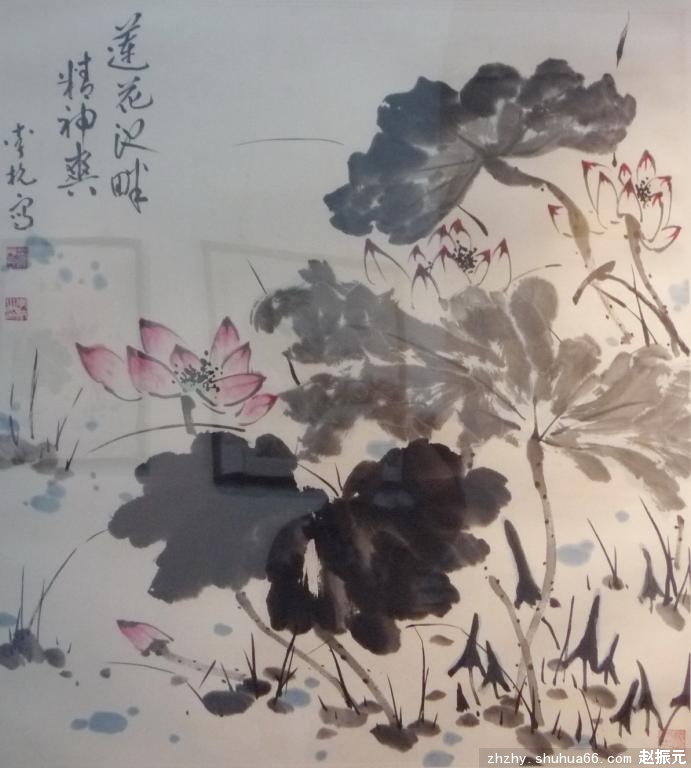 蓮花池畔
精神爽
写
zhzhy.shuhua66.com 赵振元